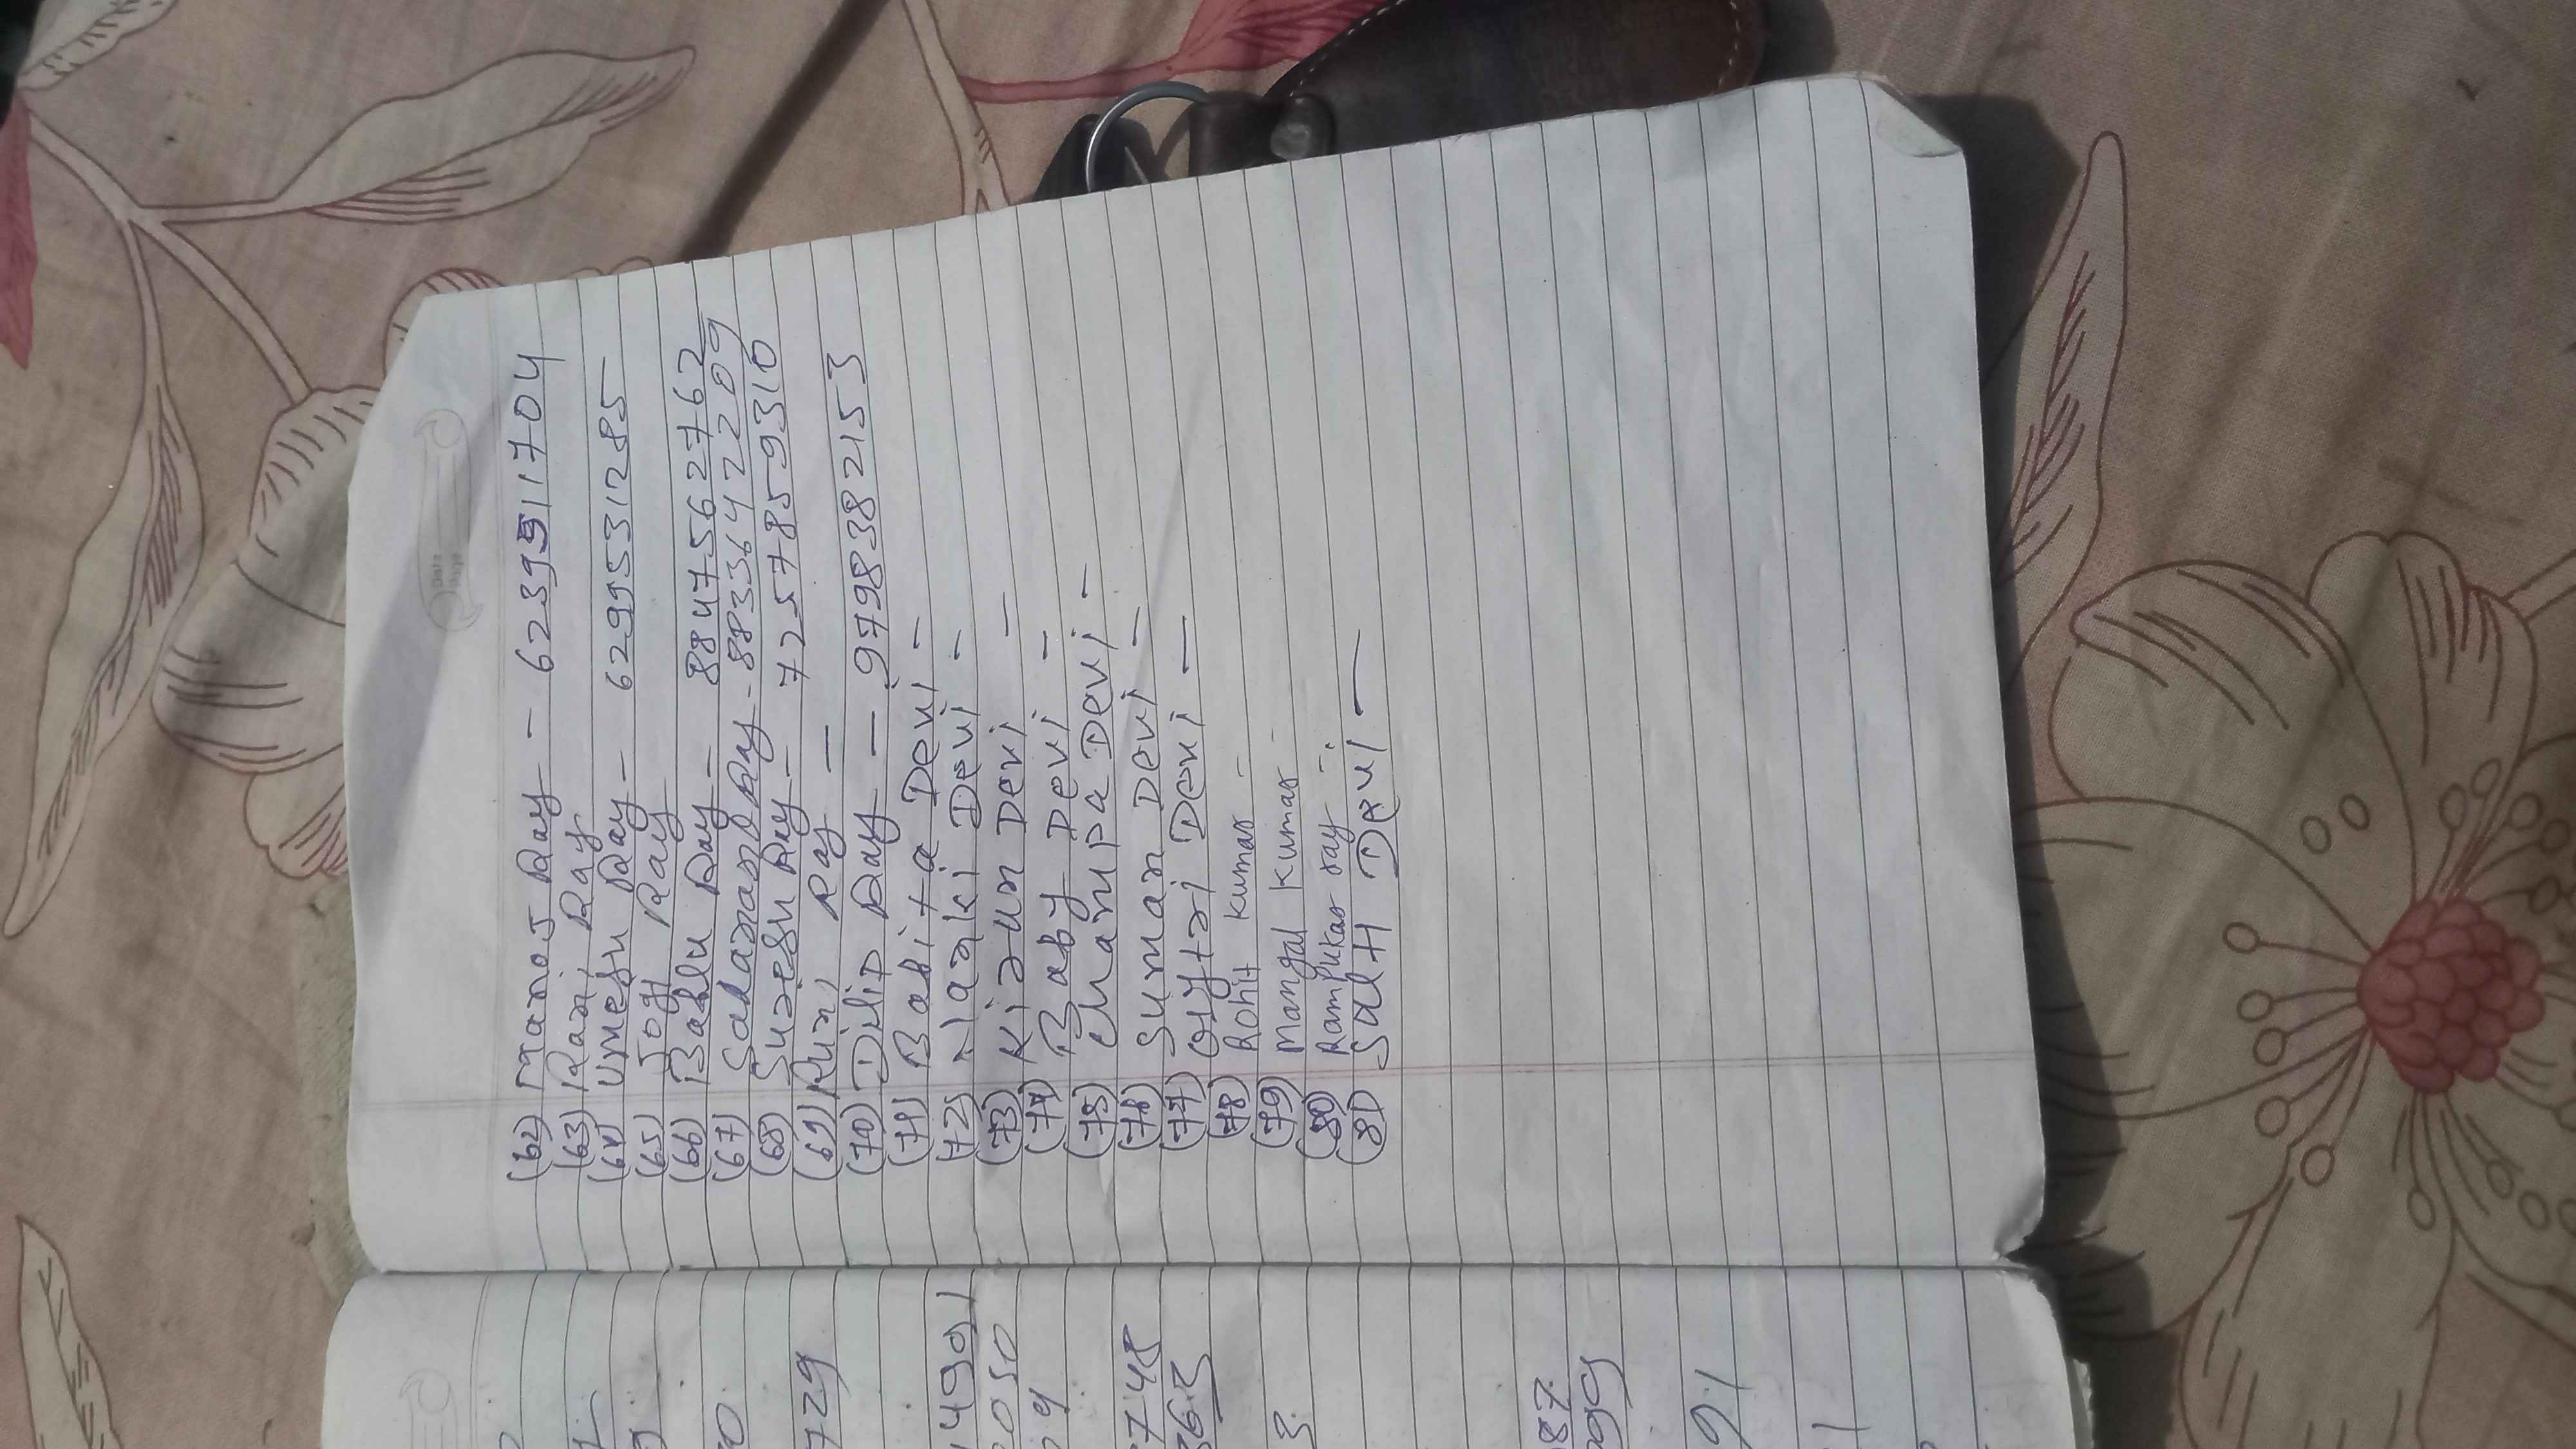 Date
Page
(62) Manoj Ray - 6239511704
(63) Rani Ray
(64) Umesh Ray - 6299531285
(65) Jogi Ray
(66) Bablu Ray - 8847562762
(67) Sadanand Ray - 8833642209
(68) Suresh Ray - 7257859310
(69) Runi Ray -
(70) Dilip Ray - 9798382153
(71) Babita Devi -
(72) Narki Devi -
(73) Kirun Devi -
(74) Baby Devi -
(75) Champa Devi -
(76) Suman Devi -
(77) Devi -
(78) Rohit Kumar -
(79) Mangal Kumar -
(80) Rampukar ray -
(81) Devi -
729
14901
2050
7748
363
3
087
999
91